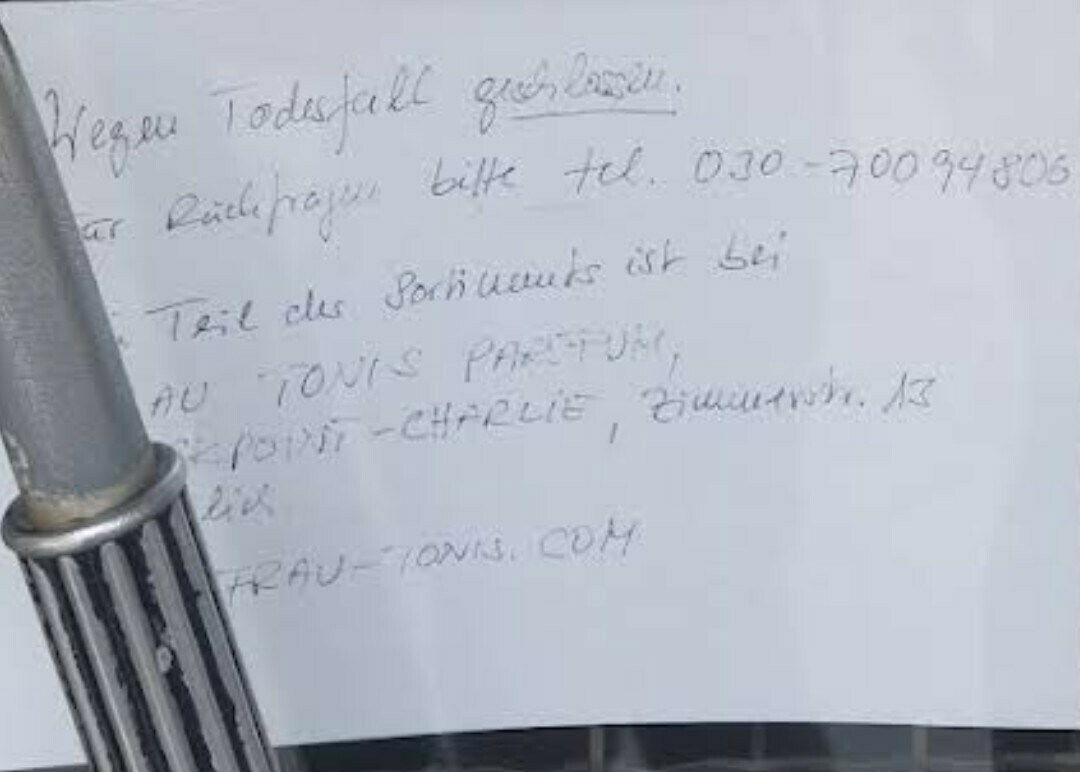 Wegen Todesfall geschlossen.
Für Rückfragen bitte tel. 030-70094806
Teil des Sortiments ist bei
AU TONIS PARFUM,
CKPOINT-CHARLIE, Zimmerstr. 13
lich
FRAU-TONIS.COM